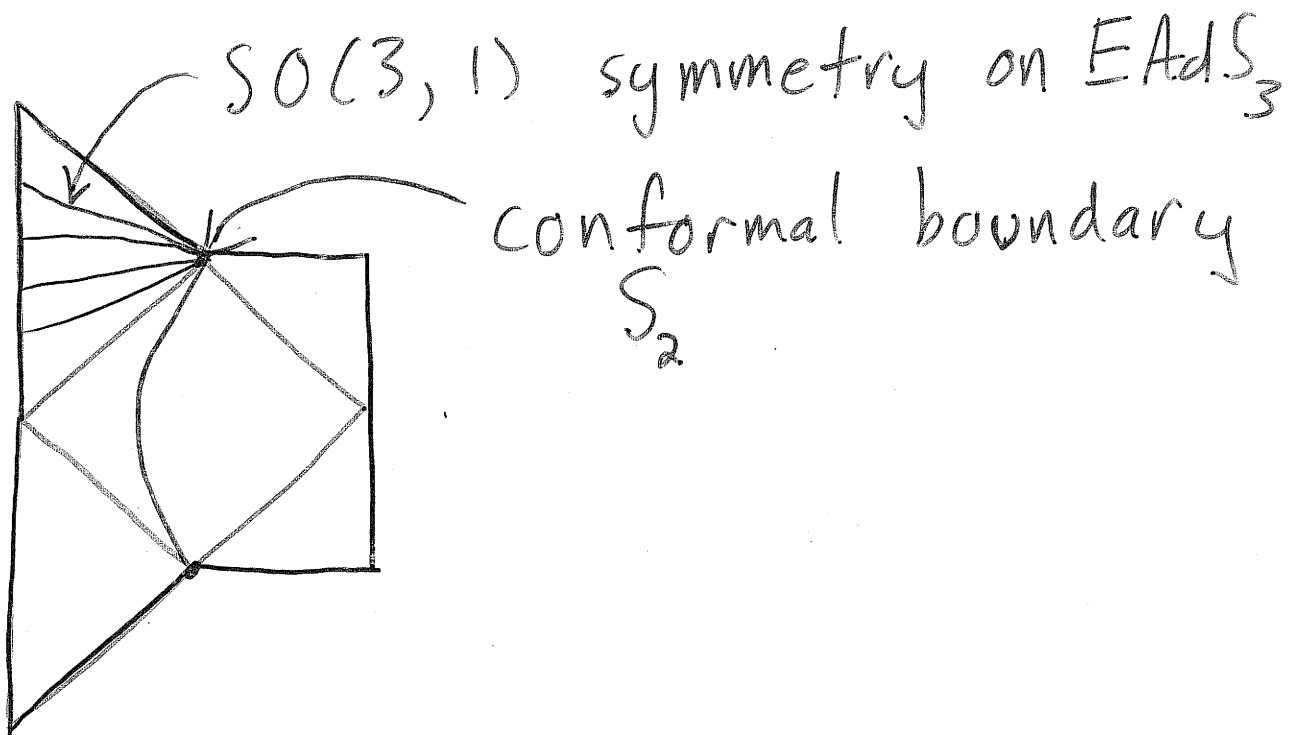 SO(3,1) symmetry on EAdS₃
conformal boundary
S₂